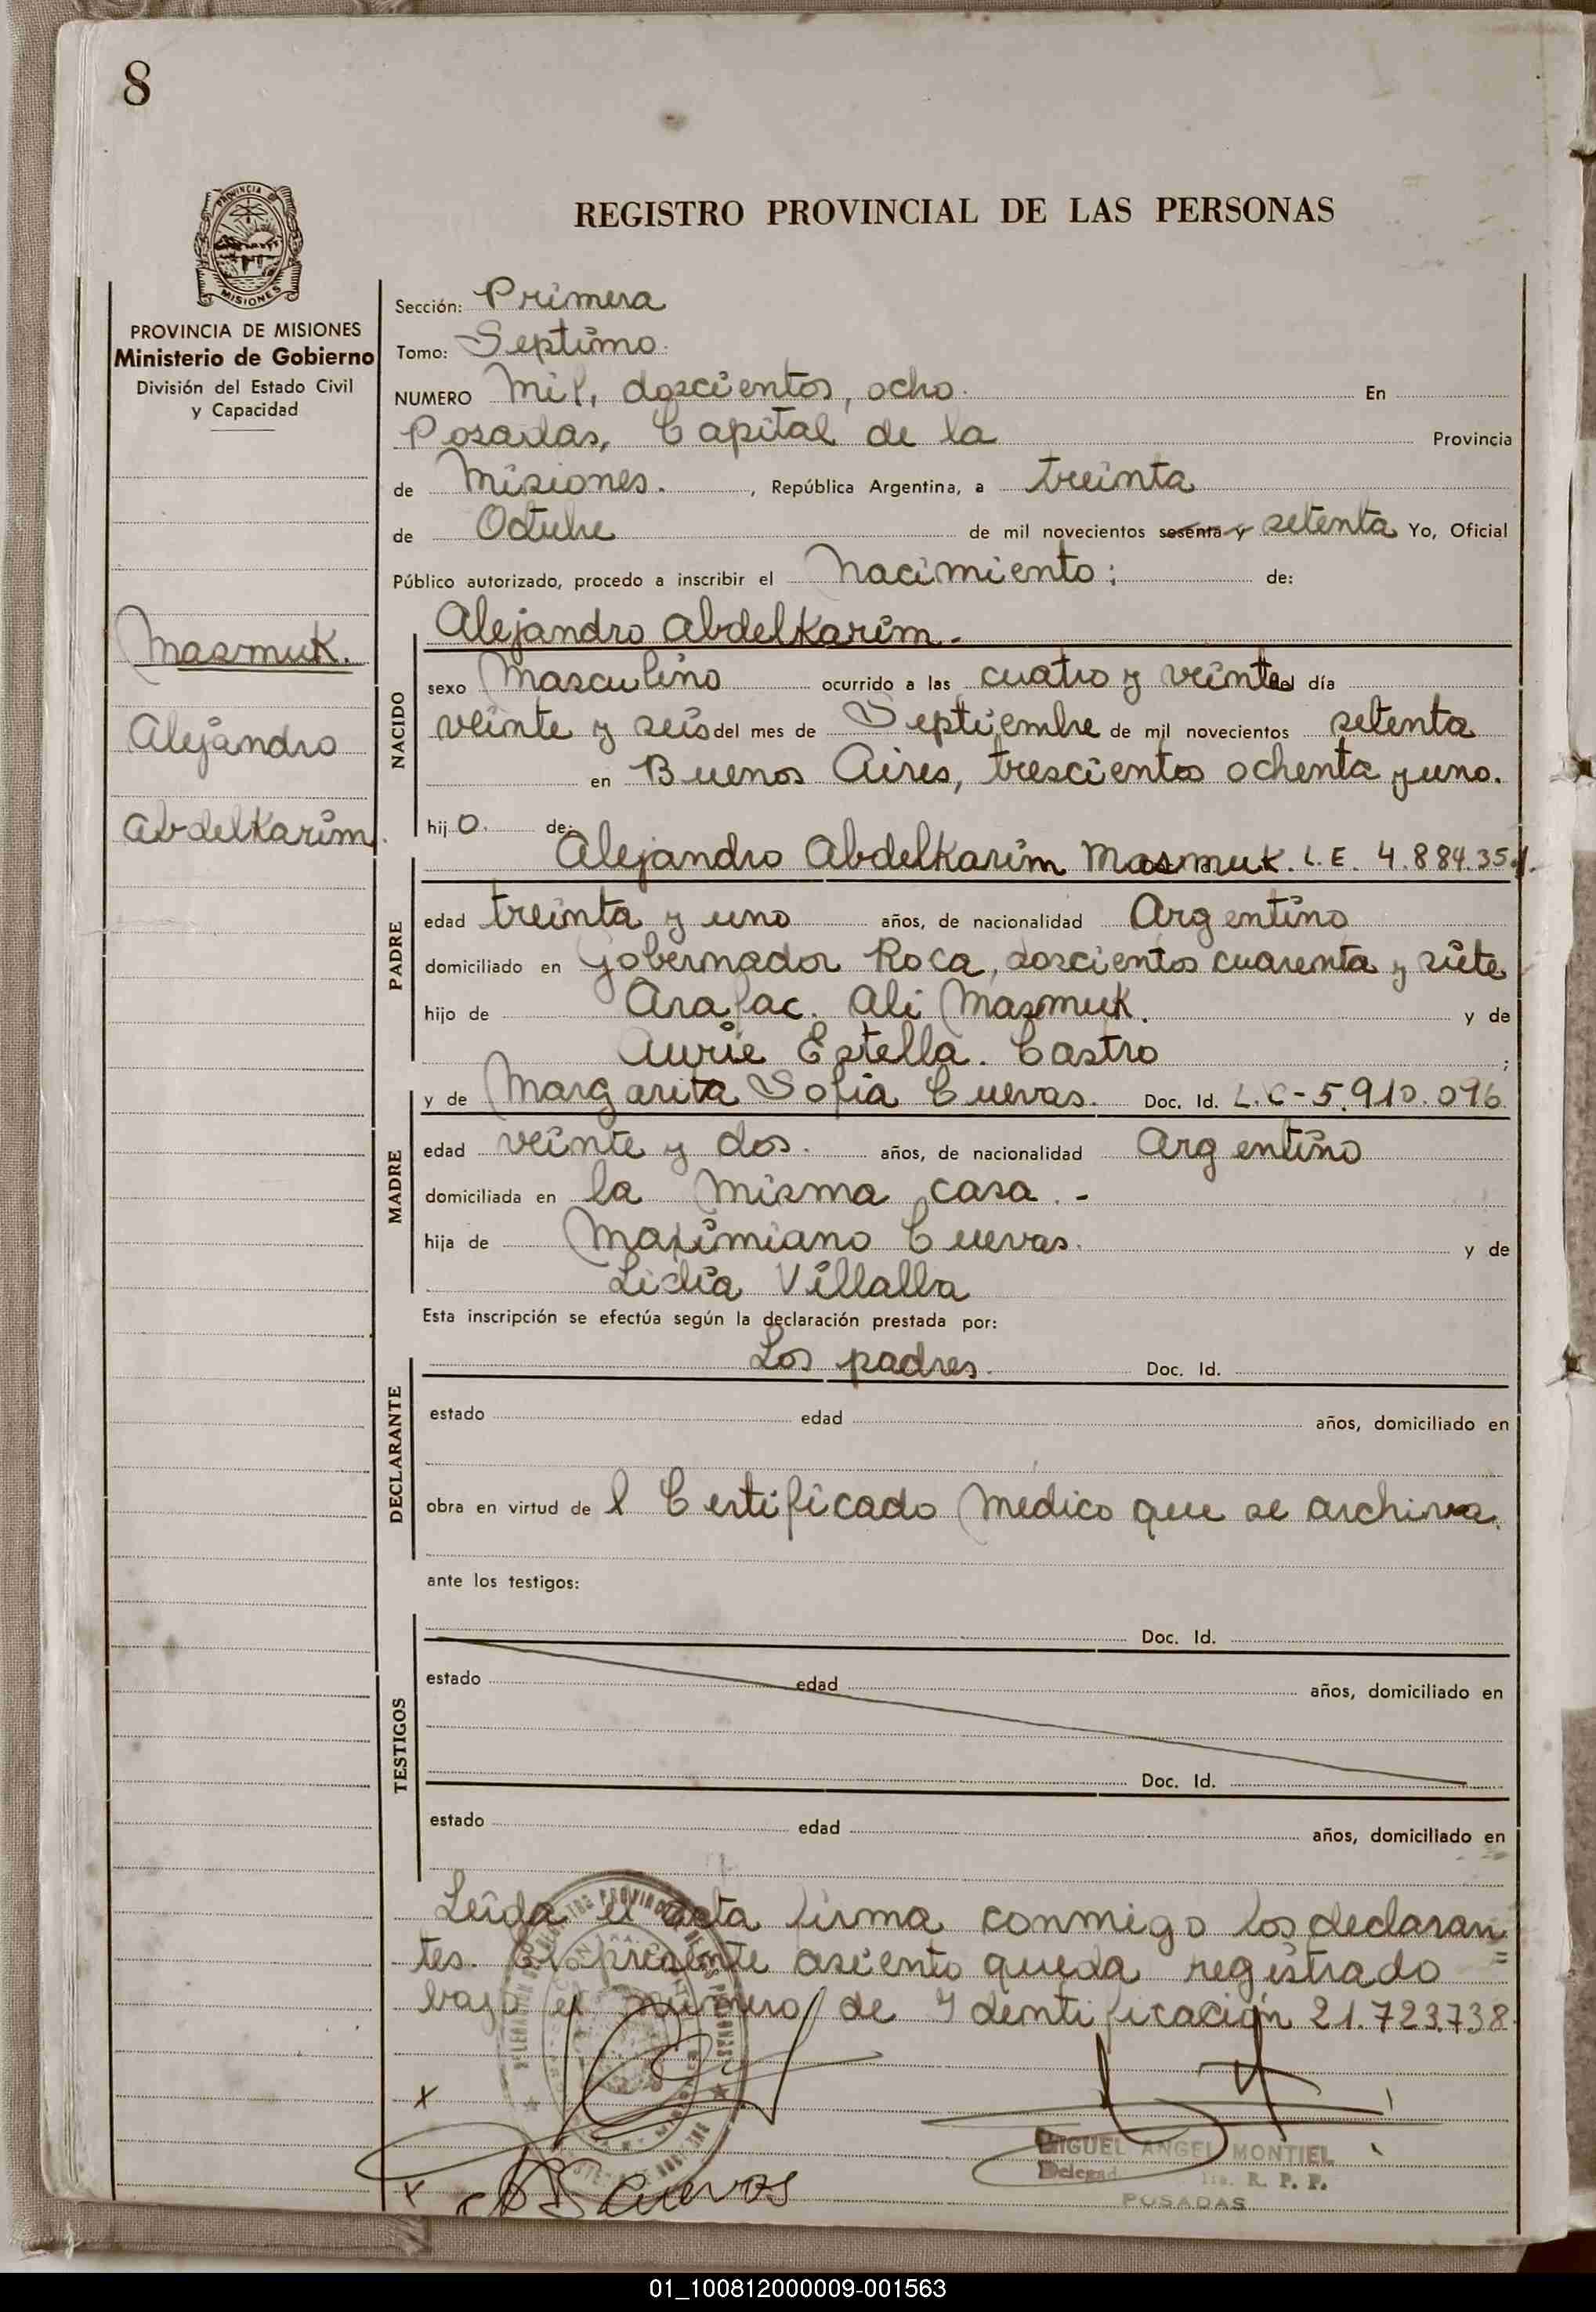 8
PROVINCIA DE
MISIONES
REGISTRO PROVINCIAL DE LAS PERSONAS
PROVINCIA DE MISIONES
Ministerio de Gobierno
División del Estado Civil
y Capacidad
Masmuk.
Alejandro
Abdelkarim.
Sección: Primera
Tomo: Septimo.
NUMERO Mil, doscientos, ocho. En
Posadas, Capital de la Provincia
de Misiones. , República Argentina, a treinta
de Octubre de mil novecientos sesenta y setenta Yo, Oficial
Público autorizado, procedo a inscribir el Nacimiento; de:
NACIDO
Alejandro Abdelkarim.-
sexo Masculino ocurrido a las cuatro y veinte del día
veinte y seis del mes de Septiembre de mil novecientos setenta
en Buenos Aires, trescientos ochenta y uno.
hij o. de:
PADRE
Alejandro Abdelkarim Masmuk. L.E. 4.884.351.
edad treinta y uno años, de nacionalidad Argentino
domiciliado en Gobernador Roca, doscientos cuarenta y siete
hijo de Arafac. Ali Masmuk. y de
Aurie Estella. Castro ;
MADRE
y de Margarita Sofia Cuevas. Doc. Id. L.C-5.910.096
edad veinte y dos. años, de nacionalidad Argentino
domiciliada en la misma casa.-
hija de Maximiano Cuevas. y de
Lidia Villalba
Esta inscripción se efectúa según la declaración prestada por:
DECLARANTE
Los padres. Doc. Id.
estado edad años, domiciliado en
obra en virtud de l Certificado Medico que se archiva.
ante los testigos:
TESTIGOS
Doc. Id.
estado edad años, domiciliado en
Doc. Id.
estado edad años, domiciliado en
Leida el acta firma conmigo los declaran
tes. El presente asiento queda registrado =
bajo el numero de Identificación 21.723.738
x
x Cuevas
MIGUEL ANGEL MONTIEL
R. P. P.
POSADAS
01_100812000009-001563